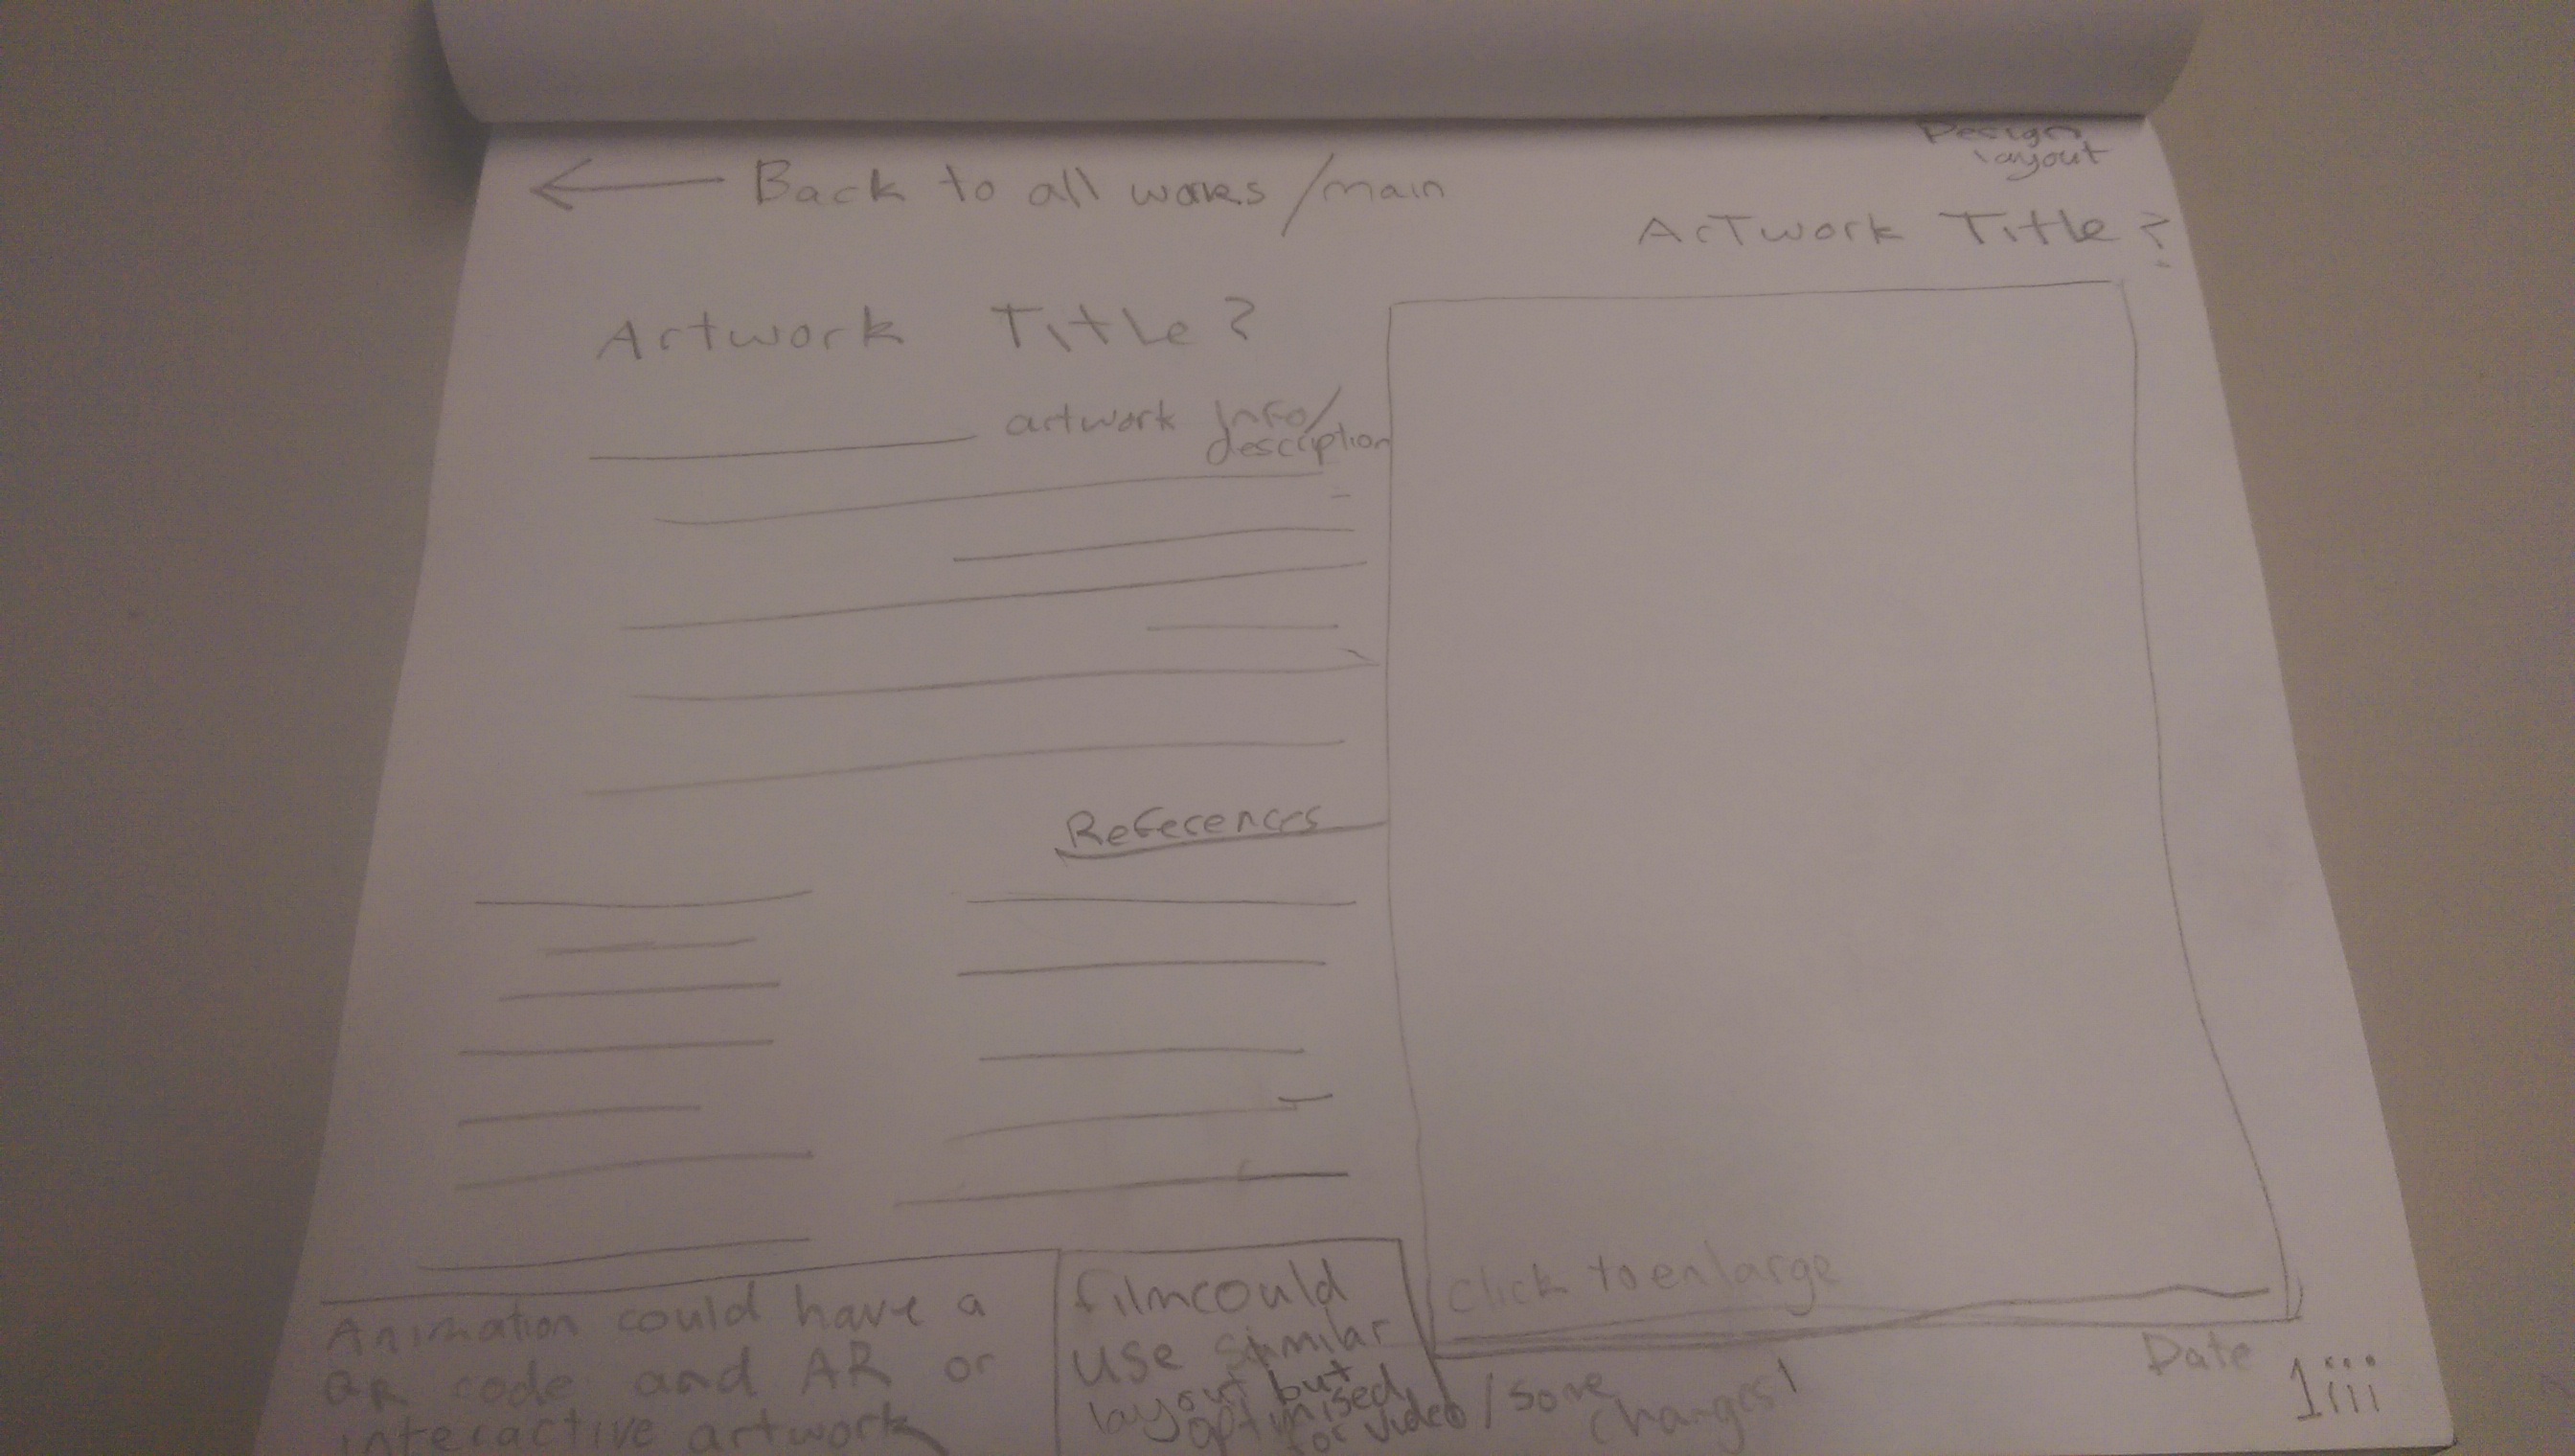 Design
layout
← Back to all works/main
Artwork Title?
Artwork Title?
artwork info/
description
References
Click to enlarge
Date
1iii
Animation could have a
QR code and AR or
interactive artwork
film could
use similar
layout but
optimised
for video / some
changes!